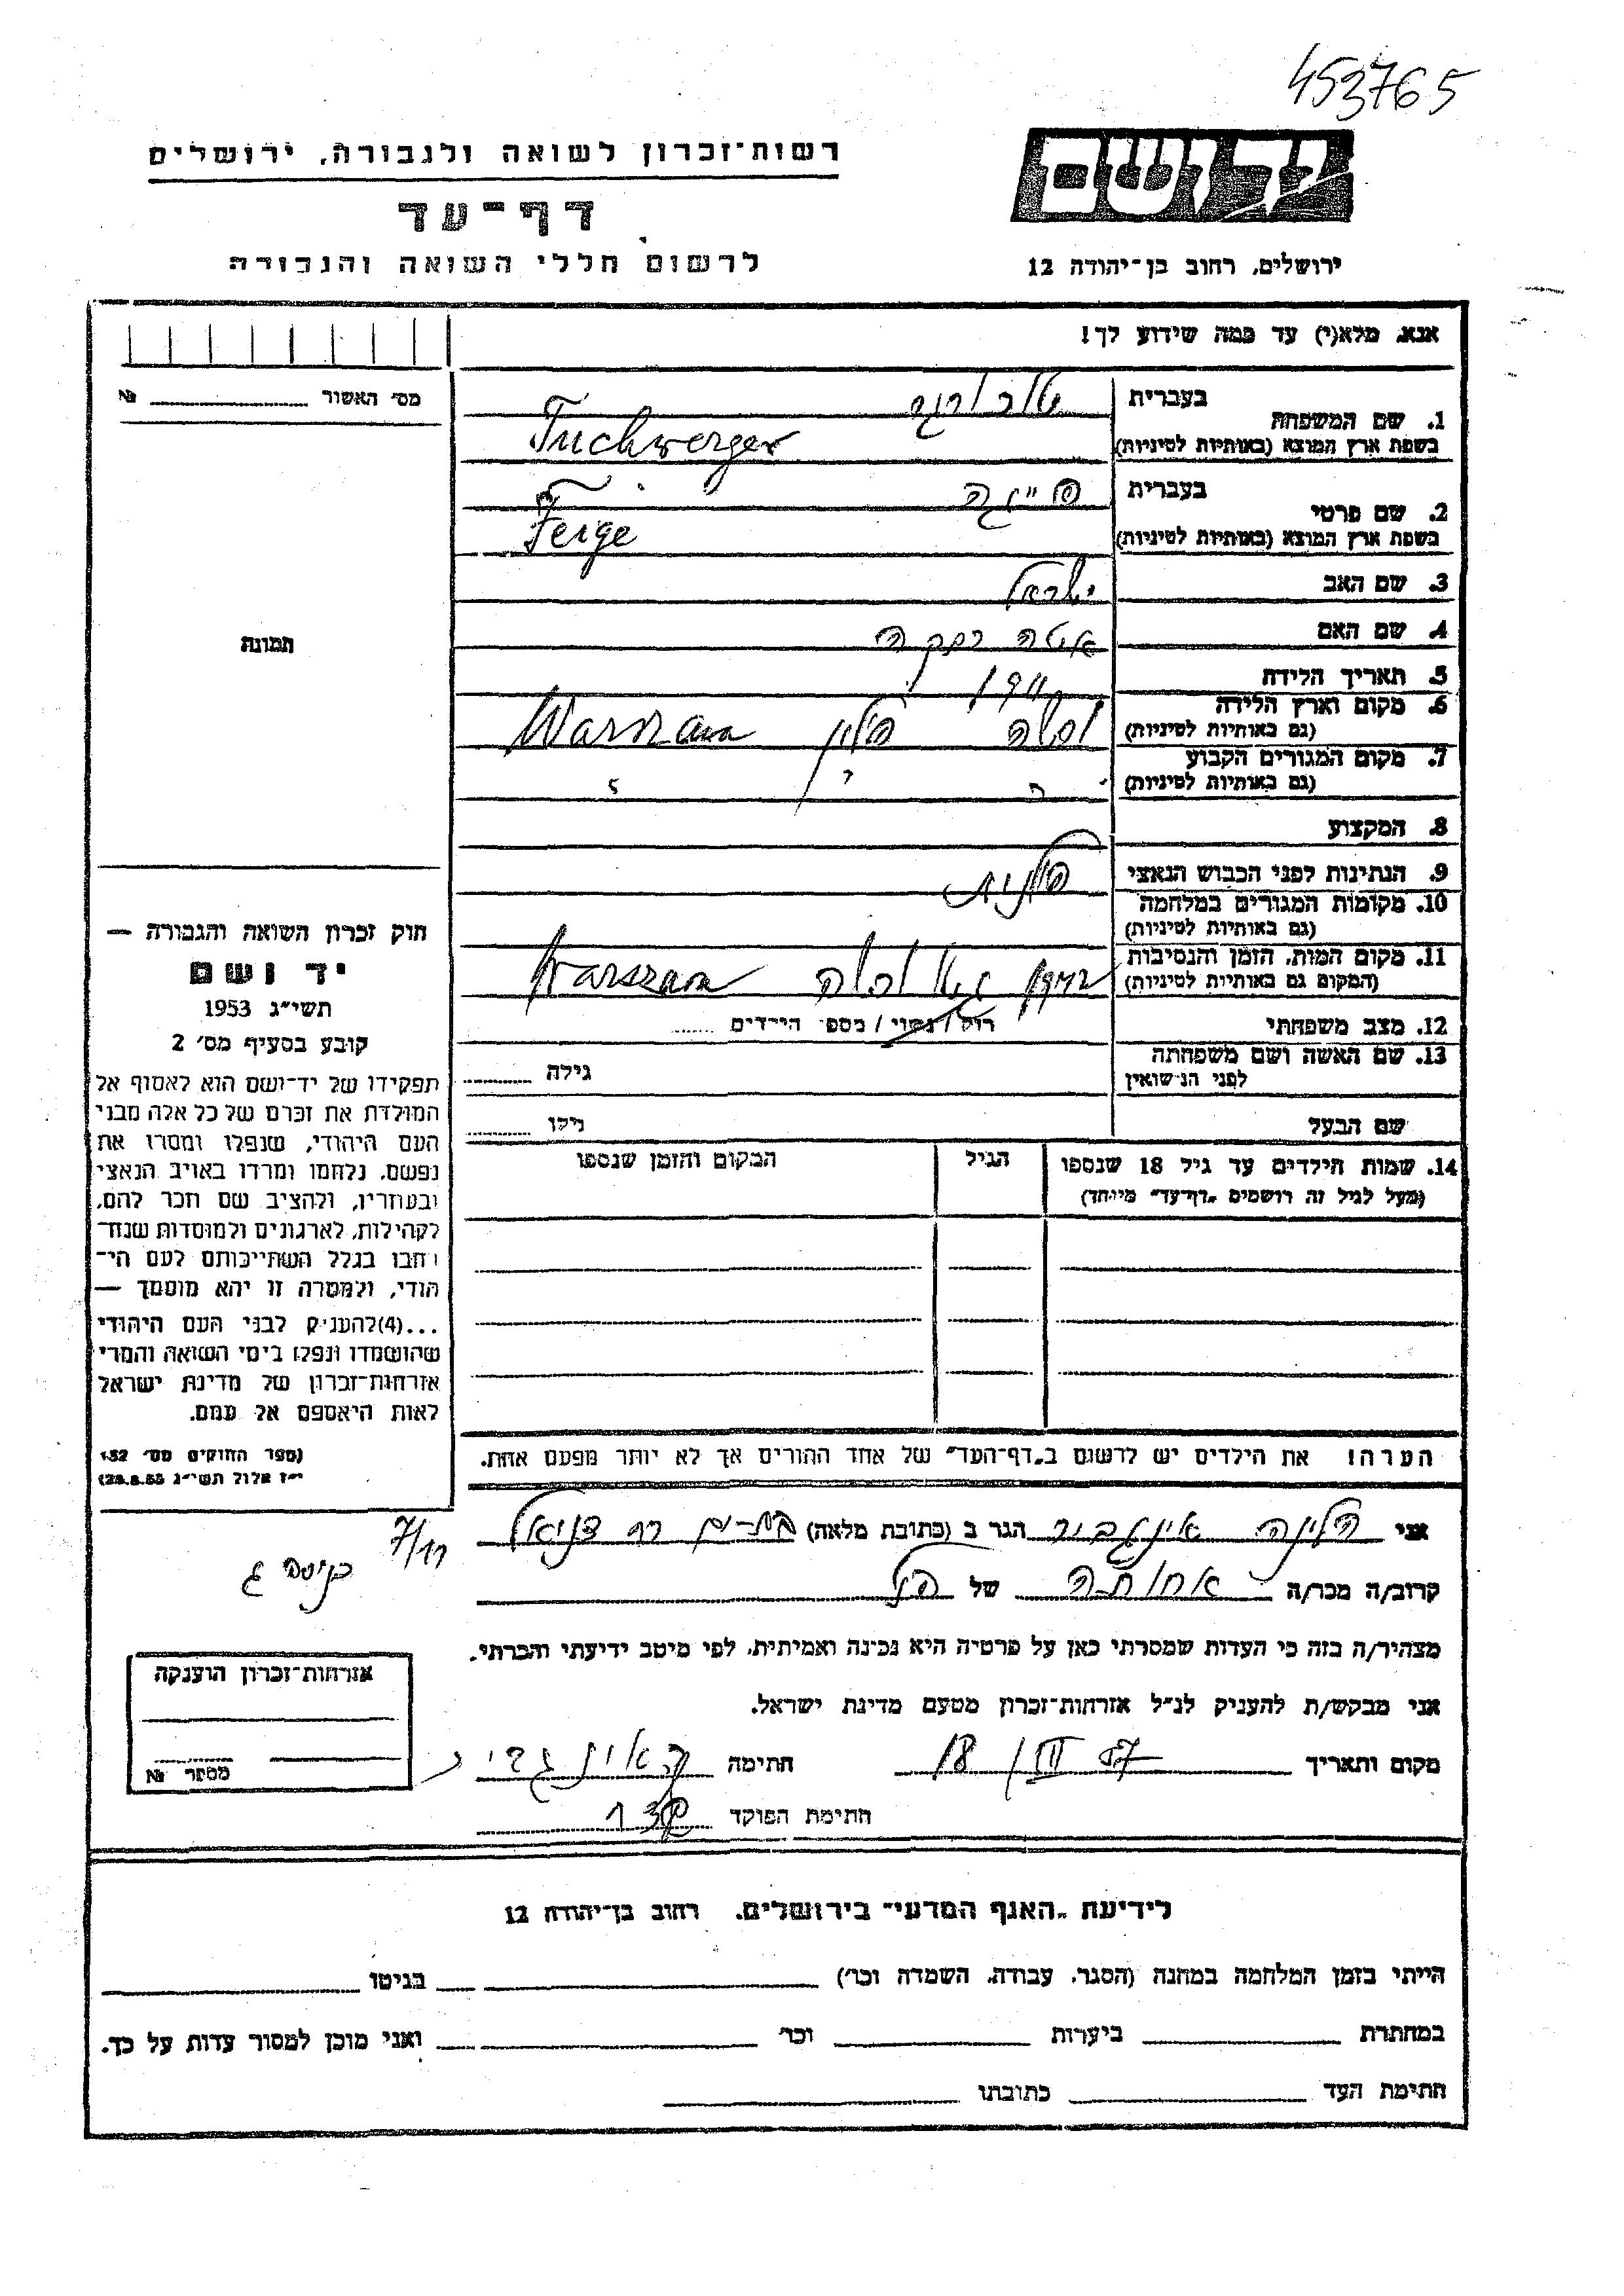 453765
יד ושם
ירושלים, רחוב בן־יהודה 12
רשות־זכרון לשואה ולגבורה, ירושלים
דף־עד
לרשום חללי השואה והגבורה
אנא, מלא(י) עד כמה שידוע לך!
מס׳ האשור №
בעברית
1. שם המשפחה
בשפת ארץ המוצא (באותיות לטיניות) Tuchwerger
בעברית פייגה
2. שם פרטי
בשפת ארץ המוצא (באותיות לטיניות) Feige
3. שם האב ישראל
4. שם האם איטה רבקה
5. תאריך הלידה
6. מקום וארץ הלידה ורשה פולין Warszawa
(גם באותיות לטיניות)
7. מקום המגורים הקבוע
(גם באותיות לטיניות)
8. המקצוע
9. הנתינות לפני הכבוש הנאצי פולנית
10. מקומות המגורים במלחמה
(גם באותיות לטיניות)
11. מקום המות, הזמן והנסיבות גיטו ורשה Warszawa
(המקום גם באותיות לטיניות)
12. מצב משפחתי רוק / נשוי / מספר הילדים
13. שם האשה ושם משפחתה גילה
לפני הנישואין
שם הבעל גילו
14. שמות הילדים עד גיל 18 שנספו הגיל המקום והזמן שנספו
(מעל לגיל זה רושמים „דף־עד״ מיוחד)
הערה: את הילדים יש לרשום ב„דף־העד״ של אחד ההורים אך לא יותר מפעם אחת.
תמונה
חוק זכרון השואה והגבורה —
יד ושם
תשי״ג 1953
קובע בסעיף מס׳ 2
תפקידו של יד־ושם הוא לאסוף אל
המולדת את זכרם של כל אלה מבני
העם היהודי, שנפלו ומסרו את
נפשם, נלחמו ומרדו באויב הנאצי
ובעוזריו, ולהציב שם וזכר להם,
לקהילות, לארגונים ולמוסדות שנח־
רבו בגלל השתייכותם לעם הי־
הודי, ולמטרה זו יהא מוסמך —
...(4) להעניק לבני העם היהודי
שהושמדו ונפלו בימי השואה והמרי
אזרחות־זכרון של מדינת ישראל
לאות היאספם אל עמם.
(ספר החוקים מס׳ 132
י״ז אלול תשי״ג 28.8.53)
אני הלינה הגר ב (כתובת מלאה) בת־ים רח דניאל
7/11
כניסה ג
קרוב/ה מכר/ה אחותה של הנ״ל
מצהיר/ה בזה כי העדות שמסרתי כאן על פרטיה היא נכונה ואמיתית, לפי מיטב ידיעתי והכרתי.
אני מבקש/ת להעניק לנ״ל אזרחות־זכרון מטעם מדינת ישראל.
מקום ותאריך 18/III 57 חתימה
חתימת הפוקד
אזרחות־זכרון הוענקה
מספר №
לידיעת „האגף המדעי״ בירושלים, רחוב בן־יהודה 12
הייתי בזמן המלחמה במחנה (הסגר, עבודה, השמדה וכו׳) בגיטו
במחתרת ביערות וכו׳ ואני מוכן למסור עדות על כך.
חתימת העד כתובתו